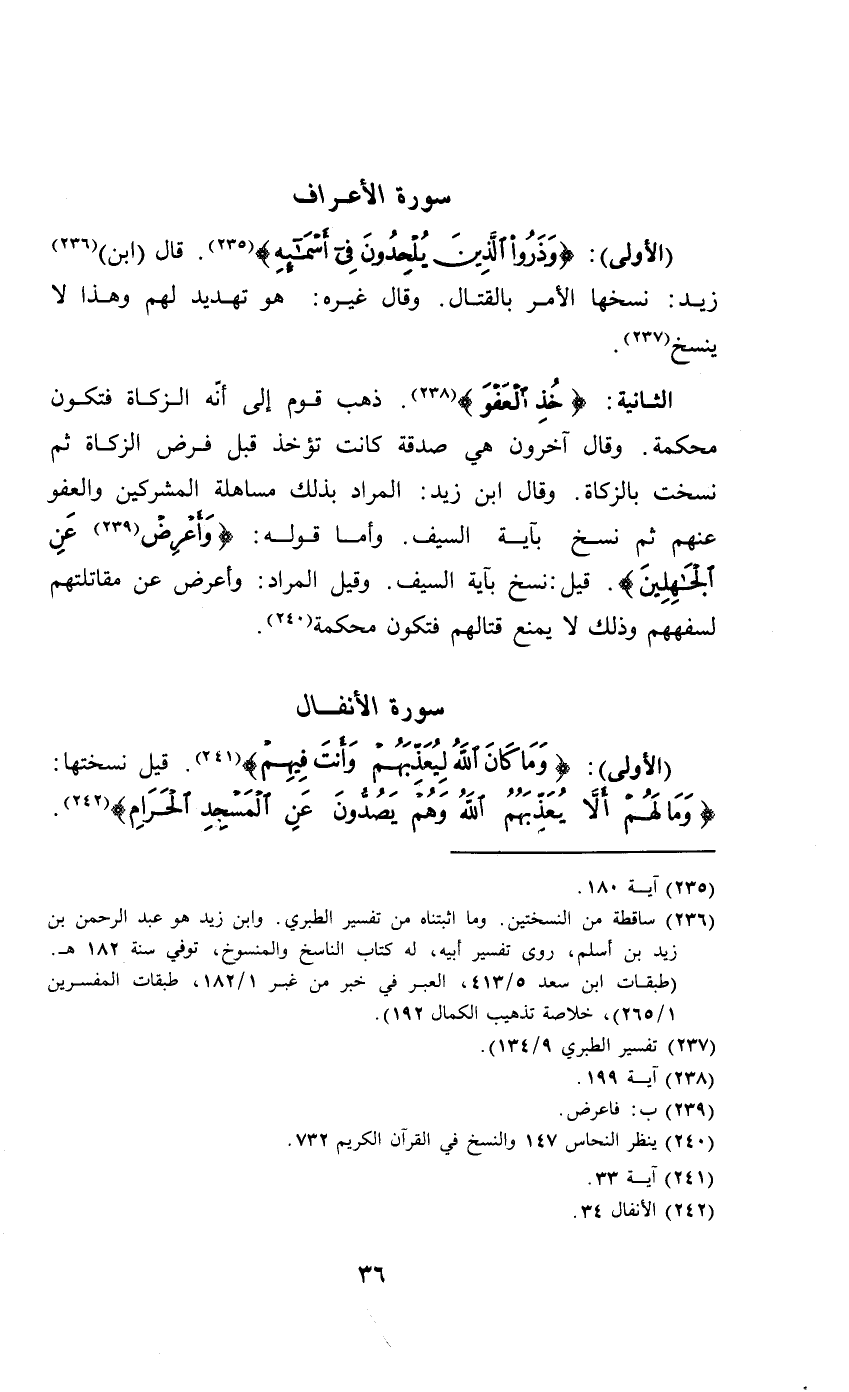 سورة الأعراف
(الأولى): ﴿وَذَرُواْ ٱلَّذِينَ يُلۡحِدُونَ فِىٓ أَسۡمَٰٓئِهِۦ﴾(٢٣٥). قال (ابن)(٢٣٦)
زيد: نسخها الأمر بالقتال. وقال غيره: هو تهديد لهم وهذا لا
ينسخ(٢٣٧).
الثانية: ﴿خُذِ ٱلۡعَفۡوَ﴾(٢٣٨). ذهب قوم إلى أنّه الزكاة فتكون
محكمة. وقال آخرون هي صدقة كانت تؤخذ قبل فرض الزكاة ثم
نسخت بالزكاة. وقال ابن زيد: المراد بذلك مساهلة المشركين والعفو
عنهم ثم نسخ بآية السيف. وأما قوله: ﴿وَأَعۡرِضۡ(٢٣٩) عَنِ
ٱلۡجَٰهِلِينَ﴾. قيل:نسخ بآية السيف. وقيل المراد: وأعرض عن مقاتلتهم
لسفههم وذلك لا يمنع قتالهم فتكون محكمة(٢٤٠).
سورة الأنفال
(الأولى): ﴿وَمَا كَانَ ٱللَّهُ لِيُعَذِّبَهُمۡ وَأَنتَ فِيهِمۡ﴾(٢٤١). قيل نسختها:
﴿وَمَا لَهُمۡ أَلَّا يُعَذِّبَهُمُ ٱللَّهُ وَهُمۡ يَصُدُّونَ عَنِ ٱلۡمَسۡجِدِ ٱلۡحَرَامِ﴾(٢٤٢).
(٢٣٥) آية ١٨٠.
(٢٣٦) ساقطة من النسختين. وما اثبتناه من تفسير الطبري. وابن زيد هو عبد الرحمن بن
زيد بن أسلم، روى تفسير أبيه، له كتاب الناسخ والمنسوخ، توفي سنة ١٨٢ هـ.
(طبقات ابن سعد ٤١٣/٥، العبر في خبر من غبر ١٨٢/١، طبقات المفسرين
٢٦٥/١)، خلاصة تذهيب الكمال ١٩٢).
(٢٣٧) تفسير الطبري ١٣٤/٩).
(٢٣٨) آية ١٩٩.
(٢٣٩) ب: فاعرض.
(٢٤٠) ينظر النحاس ١٤٧ والنسخ في القرآن الكريم ٧٣٢.
(٢٤١) آية ٣٣.
(٢٤٢) الأنفال ٣٤.
٣٦